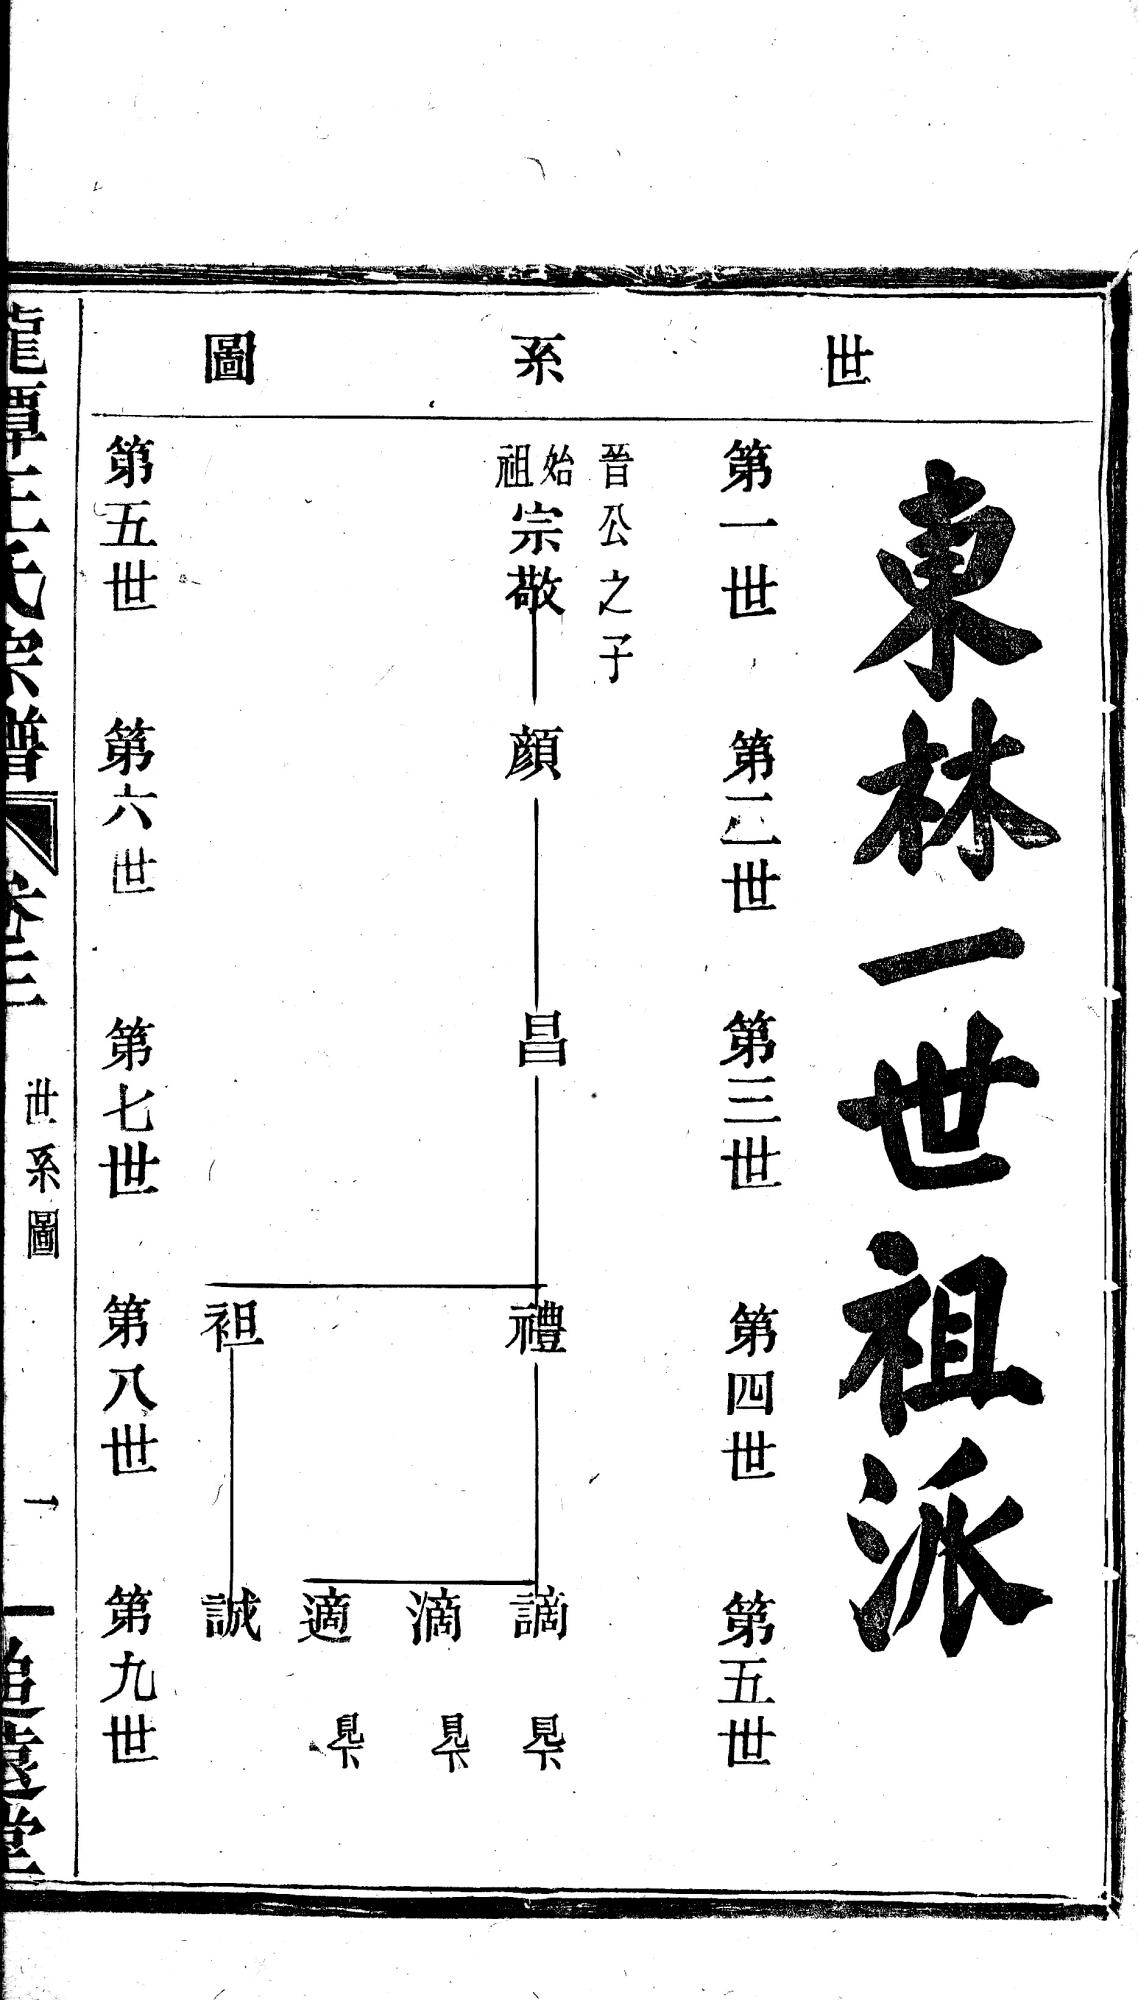 世系圖
東林一世祖派
第一世 第二世 第三世 第四世 第五世
晉公之子
始祖宗敬 顔 昌 禮 謫 見下
滴 見下
適 見下
袒 誠
第五世 第六世 第七世 第八世 第九世
龍潭王氏宗譜 卷三 世系圖 一 追遠堂